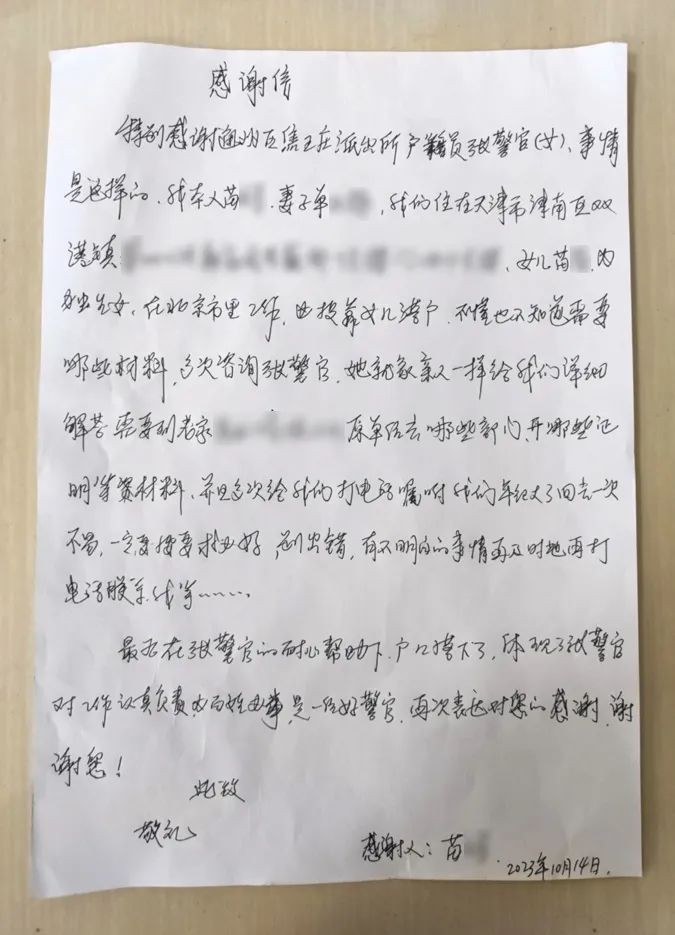 感谢信
特别感谢通州区焦王庄派出所户籍员张警官(女)、事情
是这样的、我本人苗 、妻子单 ,我们住在天津市津南区双
港镇 、女儿苗 、为
独生女、在北京市里工作,由投靠女儿落户、不懂也不知道需要
哪些材料,多次咨询张警官,她就象亲人一样给我们详细
解答需要到老家 原单位去哪些部门、开哪些证
明等资材料、并且多次给我们打电话嘱咐我们年纪大了回去一次
不易,一定要按要求办好,别出错,有不明白的事情再及时地再打
电话联系我等......
最后在张警官的耐心帮助下、户口落下了,体现了张警官
对工作认真负责,为百姓办事,是一位好警官,再次表达对您的感谢、谢
谢您!
此致
敬礼
感谢人:苗
2023年10月14日.